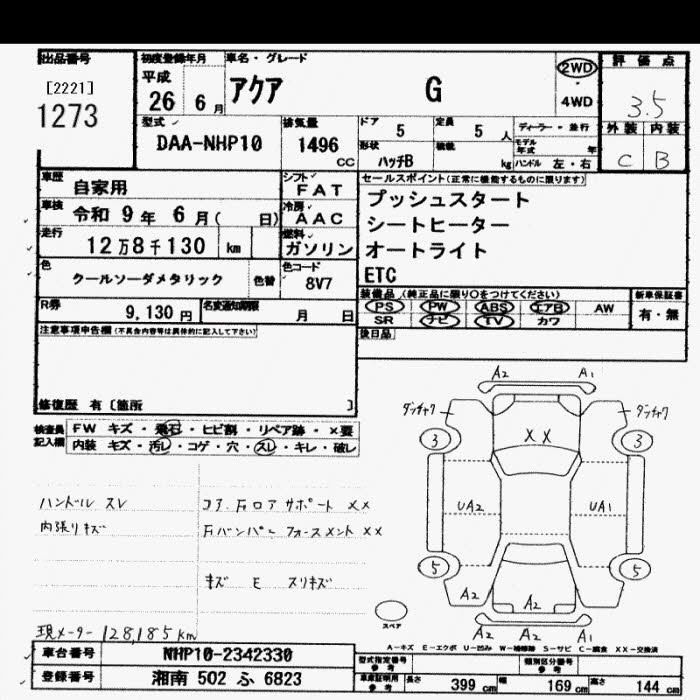 出品番号
[2221]
1273
初度登録年月
平成
26 6月
車名・グレード
アクア G
2WD
4WD
評価点
3.5
外装 内装
C B
型式
DAA-NHP10
排気量
1496
CC
ドア
5
定員
5人
形状
ハッチB
積載
kg
ディーラー・並行
モデル年式 年
ハンドル 左・右
車歴
自家用
車検
令和 9年 6月( 日)
走行
12万8千130 km
色
クールソーダメタリック
色替
シフト
FAT
冷房
AAC
燃料
ガソリン
色コード
8V7
セールスポイント(正常に機能するものに限ります)
プッシュスタート
シートヒーター
オートライト
ETC
R券
9,130 円
名変通知期限
月 日
装備品 (純正品に限り○をつけてください)
PS PW ABS エアB AW
SR ナビ TV カワ
新車保証書
有・無
後日品
注意事項申告欄(不具合内容等は具体的に記入して下さい)
修復歴 有 [箇所 ]
検査員
記入欄
FW キズ・飛石・ヒビ割・リペア跡・×要
内装 キズ・汚レ・コゲ・穴・スレ・キレ・破レ
ハンドル スレ
内張リキズ
コア.Fロアサポート XX
FバンパーEフォースメント XX
キズ E スリキズ
現メーター 128,185km
A2 A1
ダッチャク ダッチャク
3 3
XX
UA2 UA1
5 5
A2 A2
A2 A2 A1
スペア
A-キズ E-エクボ U-凹み W-補修跡 S-サビ C-腐食 XX-交換済
車台番号
NHP10-2342330
登録番号
湘南 502 ふ 6823
型式指定番号
参考
類別区分番号
参考
車庫証明用
参考
長さ 399 cm 幅 169 cm 高さ 144 cm